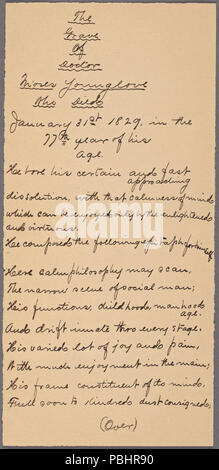 The
Grave
Of
Doctor
Moses Younglove
Who Died
January 31st 1829. in the
77th year of his
Age.
He bore his certain and fast
approaching
dissolution, with that calmness of mind
which can be enjoyed only by the enlightened
and virtuous.
He composed the following epitaph for himself
Here calm philosophy may scan,
The narrow scene of social man;
His functions, childhood, manhood,
age.
And drift innate thro every stage.
His varied lot of joy and pain,
With much enjoyment in the main;
His frame constituent of its mind,
Full soon to kindred dust consigned,
(Over)
alamy
Image ID: PBHR90
www.alamy.com